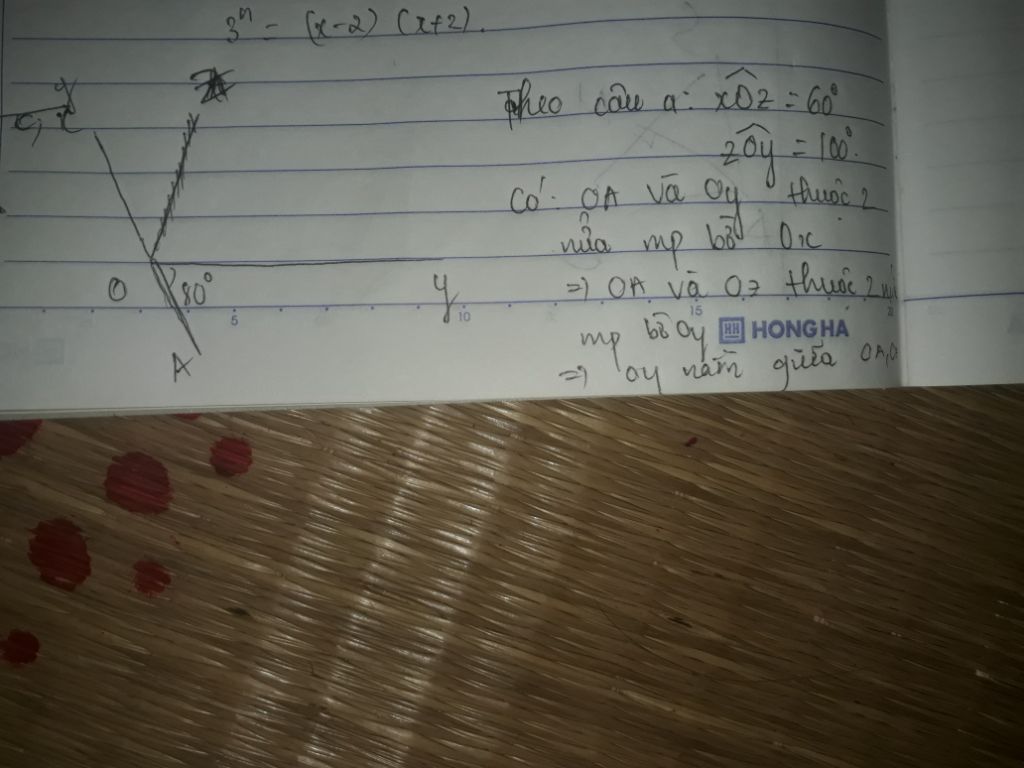 3ⁿ = (x-2) (x+2).
x
O
80°
y
A
5
10
15
HH HONG HÀ
Theo câu a: xOz = 60°
zOy = 100°.
Có: OA và Oy thuộc 2
nửa mp bờ Ox
=> OA và Oz thuộc 2
mp bờ Oy
=> Oy nằm giữa OA,